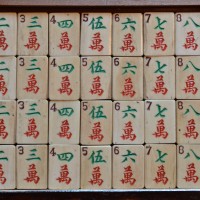 3 4 5 6 7 8
二 三 四 伍 六 七 八
萬 萬 萬 萬 萬 萬 萬
3 4 5 6 7 8
二 三 四 伍 六 七 八
萬 萬 萬 萬 萬 萬 萬
3 4 5 6 7 8
二 三 四 伍 六 七 八
萬 萬 萬 萬 萬 萬 萬
3 4 5 6 7 8
二 三 四 伍 六 七 八
萬 萬 萬 萬 萬 萬 萬